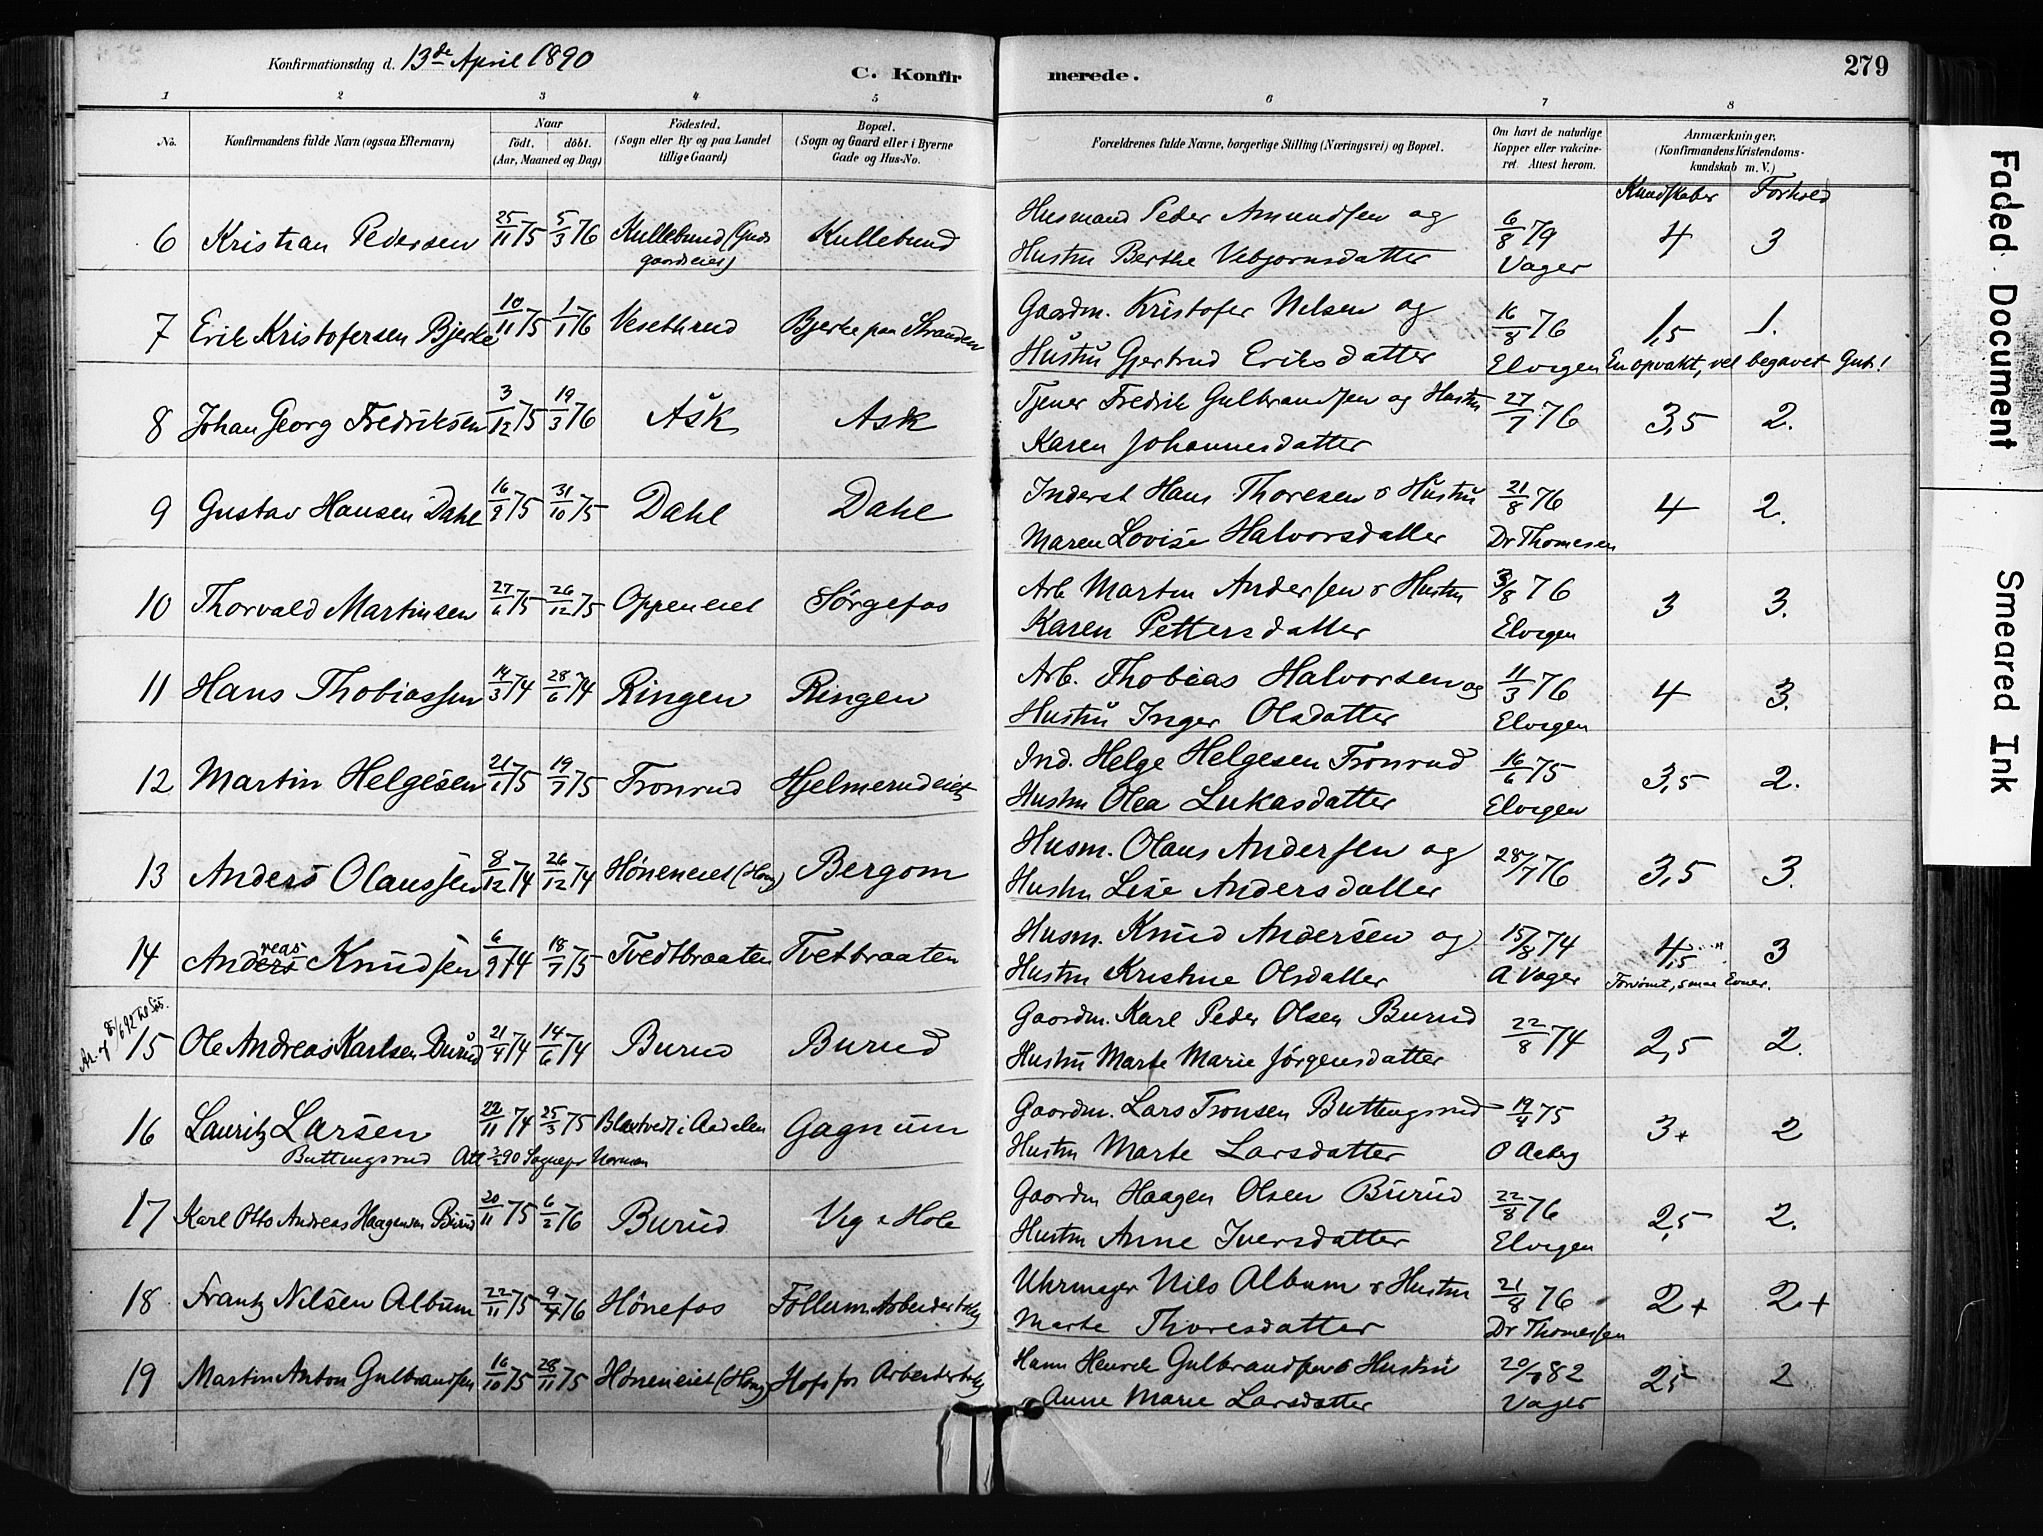 Konfirmationsdag d. 13de April 1890
C. Konfir merede. 279
1 2 3 4 5 6 7 8
No. Konfirmandens fulde Navn (ogsaa Efternavn) Naar født. døbt. (Aar, Maaned og Dag) Födested. (Sogn eller By og paa Landet tillige Gaard) Bopæl. (Sogn og Gaard eller i Byerne Gade og Hus-No. Forældrenes fulde Navne, borgerlige Stilling (Næringsvei) og Bopæl. Om havt de naturlige Kopper eller vakcineret. Attest herom. Anmærkninger. (Konfirmandens Kristendomskundskab m.V.)
Kundskaber Forhold
6 Kristian Pedersen 25/11 75 5/3 76 Kullebund Kullebund Husmand Peder Amundsen og 6/8 79 4 3
Hustru Berthe Vebjørnsdatter Vager
7 Erik Kristofersen Bjerke 10/11 75 1/1 76 Vesethrud Bjerke paa Stranden Gaardm. Kristofer Nilsen og 16/8 76 1,5 1.
Hustru Gjertrud Eriksdatter Elvigen En opvakt, vel begavet Gut!
8 Johan Georg Fredriksen 3/12 75 19/3 76 Ask Ask Tjener Fredrik Gulbrandsen og Hustru 27/7 76 3,5 2.
Karen Johannesdatter
9 Gustav Hansen Dahl 16/9 75 31/10 75 Dahl Dahl Inderst Hans Thoresen & Hustru 21/8 76 4 2.
Maren Lovise Halvorsdatter Dr Thomesen
10 Thorvald Martinsen 27/6 75 26/12 75 Oppeneiet Sørgefos Arb Martin Andersen & Hustru 3/8 76 3 3.
Karen Pettersdatter Elvigen
11 Hans Thobiassen 14/3 74 28/6 74 Ringen Ringen Arb. Thobias Halvorsen og 11/3 76 4 3.
Hustru Inger Olsdatter Elvigen
12 Martin Helgesen 21/1 75 19/7 75 Tronrud Hjelmerudeiet Ind. Helge Helgesen Tronrud 16/6 75 3,5 2.
Hustru Olea Lukasdatter Elvigen
13 Anders Olaussen 8/12 74 26/12 74 Høneneiet (Hong) Bergom Husm. Olaus Andersen og 28/7 76 3,5 3.
Hustru Lise Andersdatter
14 Andreas Knudsen 6/9 74 18/7 75 Tvedtbraaten Tvetbraaten Husm. Knud Andersen og 15/8 74 4,5 3
Hustru Kristine Olsdatter A Vager Forsømt, smaa Evner.
15 Ole Andreas Karlsen Burud 21/4 74 14/6 74 Burud Burud Gaardm. Karl Peder Olsen Burud 22/8 74 2,5 2.
Hustru Marte Marie Jørgensdatter
16 Lauritz Larsen 22/11 74 25/3 75 Blaxtvedt i Aadalen Gagnum Gaardm. Lars Tronsen Buttingsrud 19/4 75 3+ 2
Buttingsrud Att 3/2 90 Sognepr Norman Hustru Marte Larsdatter O Aaberg
17 Karl Otto Andreas Haagensen Burud 20/11 75 6/2 76 Burud Vig i Hole Gaardm Haagen Olsen Burud 22/8 76 2,5 2.
Hustru Anne Iversdatter Elvigen
18 Frantz Nilsen Album 22/11 75 9/4 76 Hønefos Follum Arbeiderbolig Uhrmager Nils Album & Hustru 21/8 76 2+ 2+
Marte Thoresdatter Dr Thomesen
19 Martin Anton Gulbrandsen 16/10 75 28/11 75 Høneneiet (Hong) Hofsfos Arbeiderbolig Hans Henrik Gulbrandsen & Hustru 20/9 82 2,5 2
Anne Marie Larsdatter Vager
Faded Document
Smeared Ink